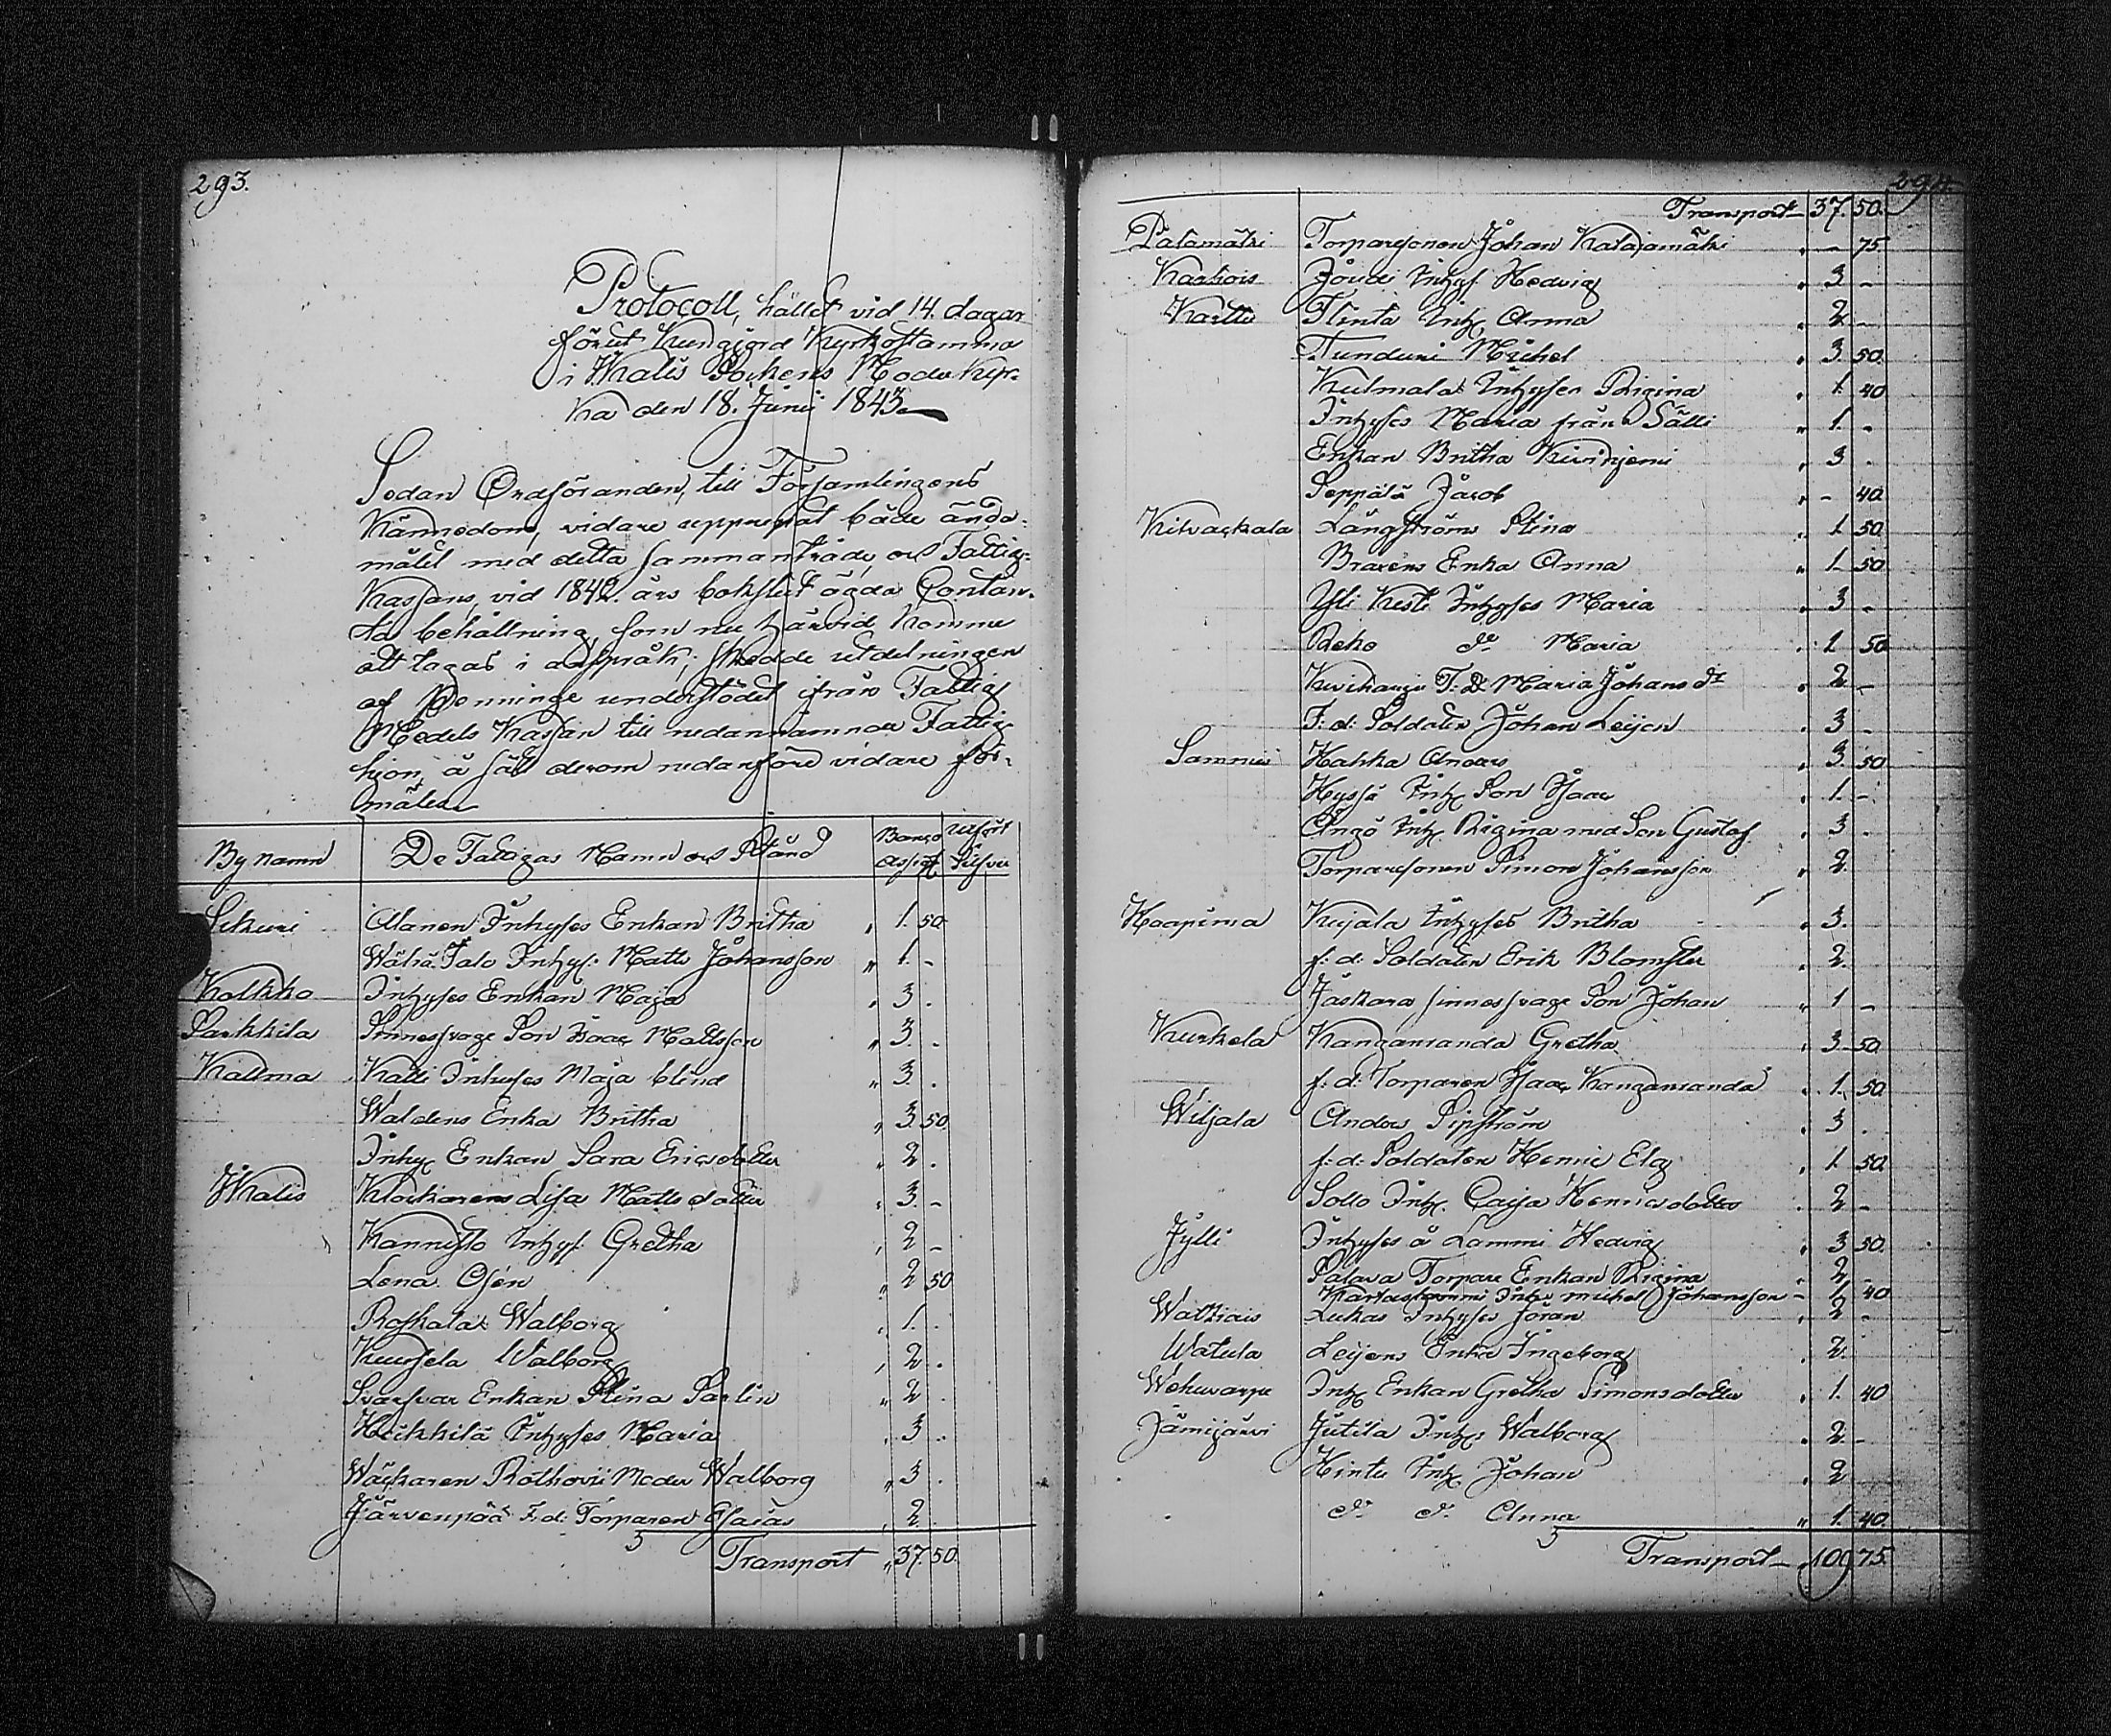 293.
Protocoll, hållet vid 14. dagar
förut Kundgjord Kyrkostämma
i Ikalis Sockens Moder Kyr-
ka den 18. Junii 1843.
Sedan Ordföranden, till Församlingens
Kännedom, vidare upprepat både ända-
målet med detta sammanträde, och Fattig-
Kassans, vid 1842. års bokslut ägda Contan-
ta behållning, som nu härvid komme
att tagas i anspråk; skedde utdelningen
af Penninge understödet ifrån Fattig
Medels Kassan till nedannämnda Fattig-
hjon, å sätt derom nedanföre vidare för-
mäles.
By namn De Fattigas Namn och Stånd Banco Assigt Silfver
Sikuri Alanen Inhyses Enkan Britha " 1. 50
Wähä Talo Inhys: Matts Johansson " 1. -
Kolkko Inhyses Enkan Maja " 3. -
Sarkkila Sinnessvage Son Isaac Mattsson " 3. -
Kallma Kalli Inhyses Maja blind " 3. -
Waldens Enka Britha " 3. 50
Inhys Enkan Sara Ericsdotter " 2. -
Ikalis Klockarens Lisa Mattsdotter " 3. -
Kannisto Inhys: Gretha " 2 -
Lena Osén " 2 50
Roskala Walborg " 1. -
Kuusela Walborg " 2. -
Svarfvar Enkan Stina Sarlin " 2 -
Heikkilä Inhyses Maria " 3 -
Wäckaren Rothovii Moder Walborg " 3 -
Järvenpää F. d: Torparen Esaias " 2. -
Transport " 37. 50.
294.
Transport 37. 50.
Palamäki Torparesonen Johan Katajamäki " - 75
Karhois Jöudi Inhys: Hedvig " 3 -
Kartti Flinta Inh: Anna " 2 -
Tunduri Michel " 3. 50.
Kulmala Inhyses Rigina " 1. 40
Inhyses Maria från Sälli " 1. -
Enkan Britha Kiviniemi " 3 -
Seppälä Jacob " - 40.
Kilvackala Långströms Stina " 1 50
Braxens Enka Anna " 1. 50
Yli Kesti Inhyses Maria " 3 -
Reko do Maria " 1 50
Kivihauju T: D: Maria Johans dr " 2 -
F: d: Soldaten Johan Leijon " 3 -
Sammi Hahka Anders " 3. 50
Hyssä Inh: Son Isaac " 1. -
Ångö Inh: Rigina med Son Gustaf " 3 -
Torparesonen Simon Johansson " 2.
Haapima Kujala Inhyses Britha " 3.
f: d: Soldaten Erik Blomster " 2.
Jaskara sinnessvage Son Johan " 1 -
Kurkela Kangasranda Gretha " 3 50
f: d: Torparen Isaac Kangasranda " 1. 50.
Wiljala Anders Sipström " 3 -
f: d: Soldaten Henric Elg " 1 50
Sollo Inh: Caisa Henricsdotter " 2 -
Jylli Inhyses å Lammi Hedvig " 3 50.
Palava Torpare Enkan Rigina " 2 -
Inh: Michel Johansson " 1. 40
Watkiais Luckas Inhyses Jöran " 2 -
Watula Leijons Enka Ingeborg " 2.
Wehuvarpe Inh: Enkan Gretha Simonsdotter " 1. 40
Jämijärvi Jutila Inh: Walborg " 2. -
Hintu Inh: Johan " 2
do do Anna " 1. 40.
Transport 109 75.